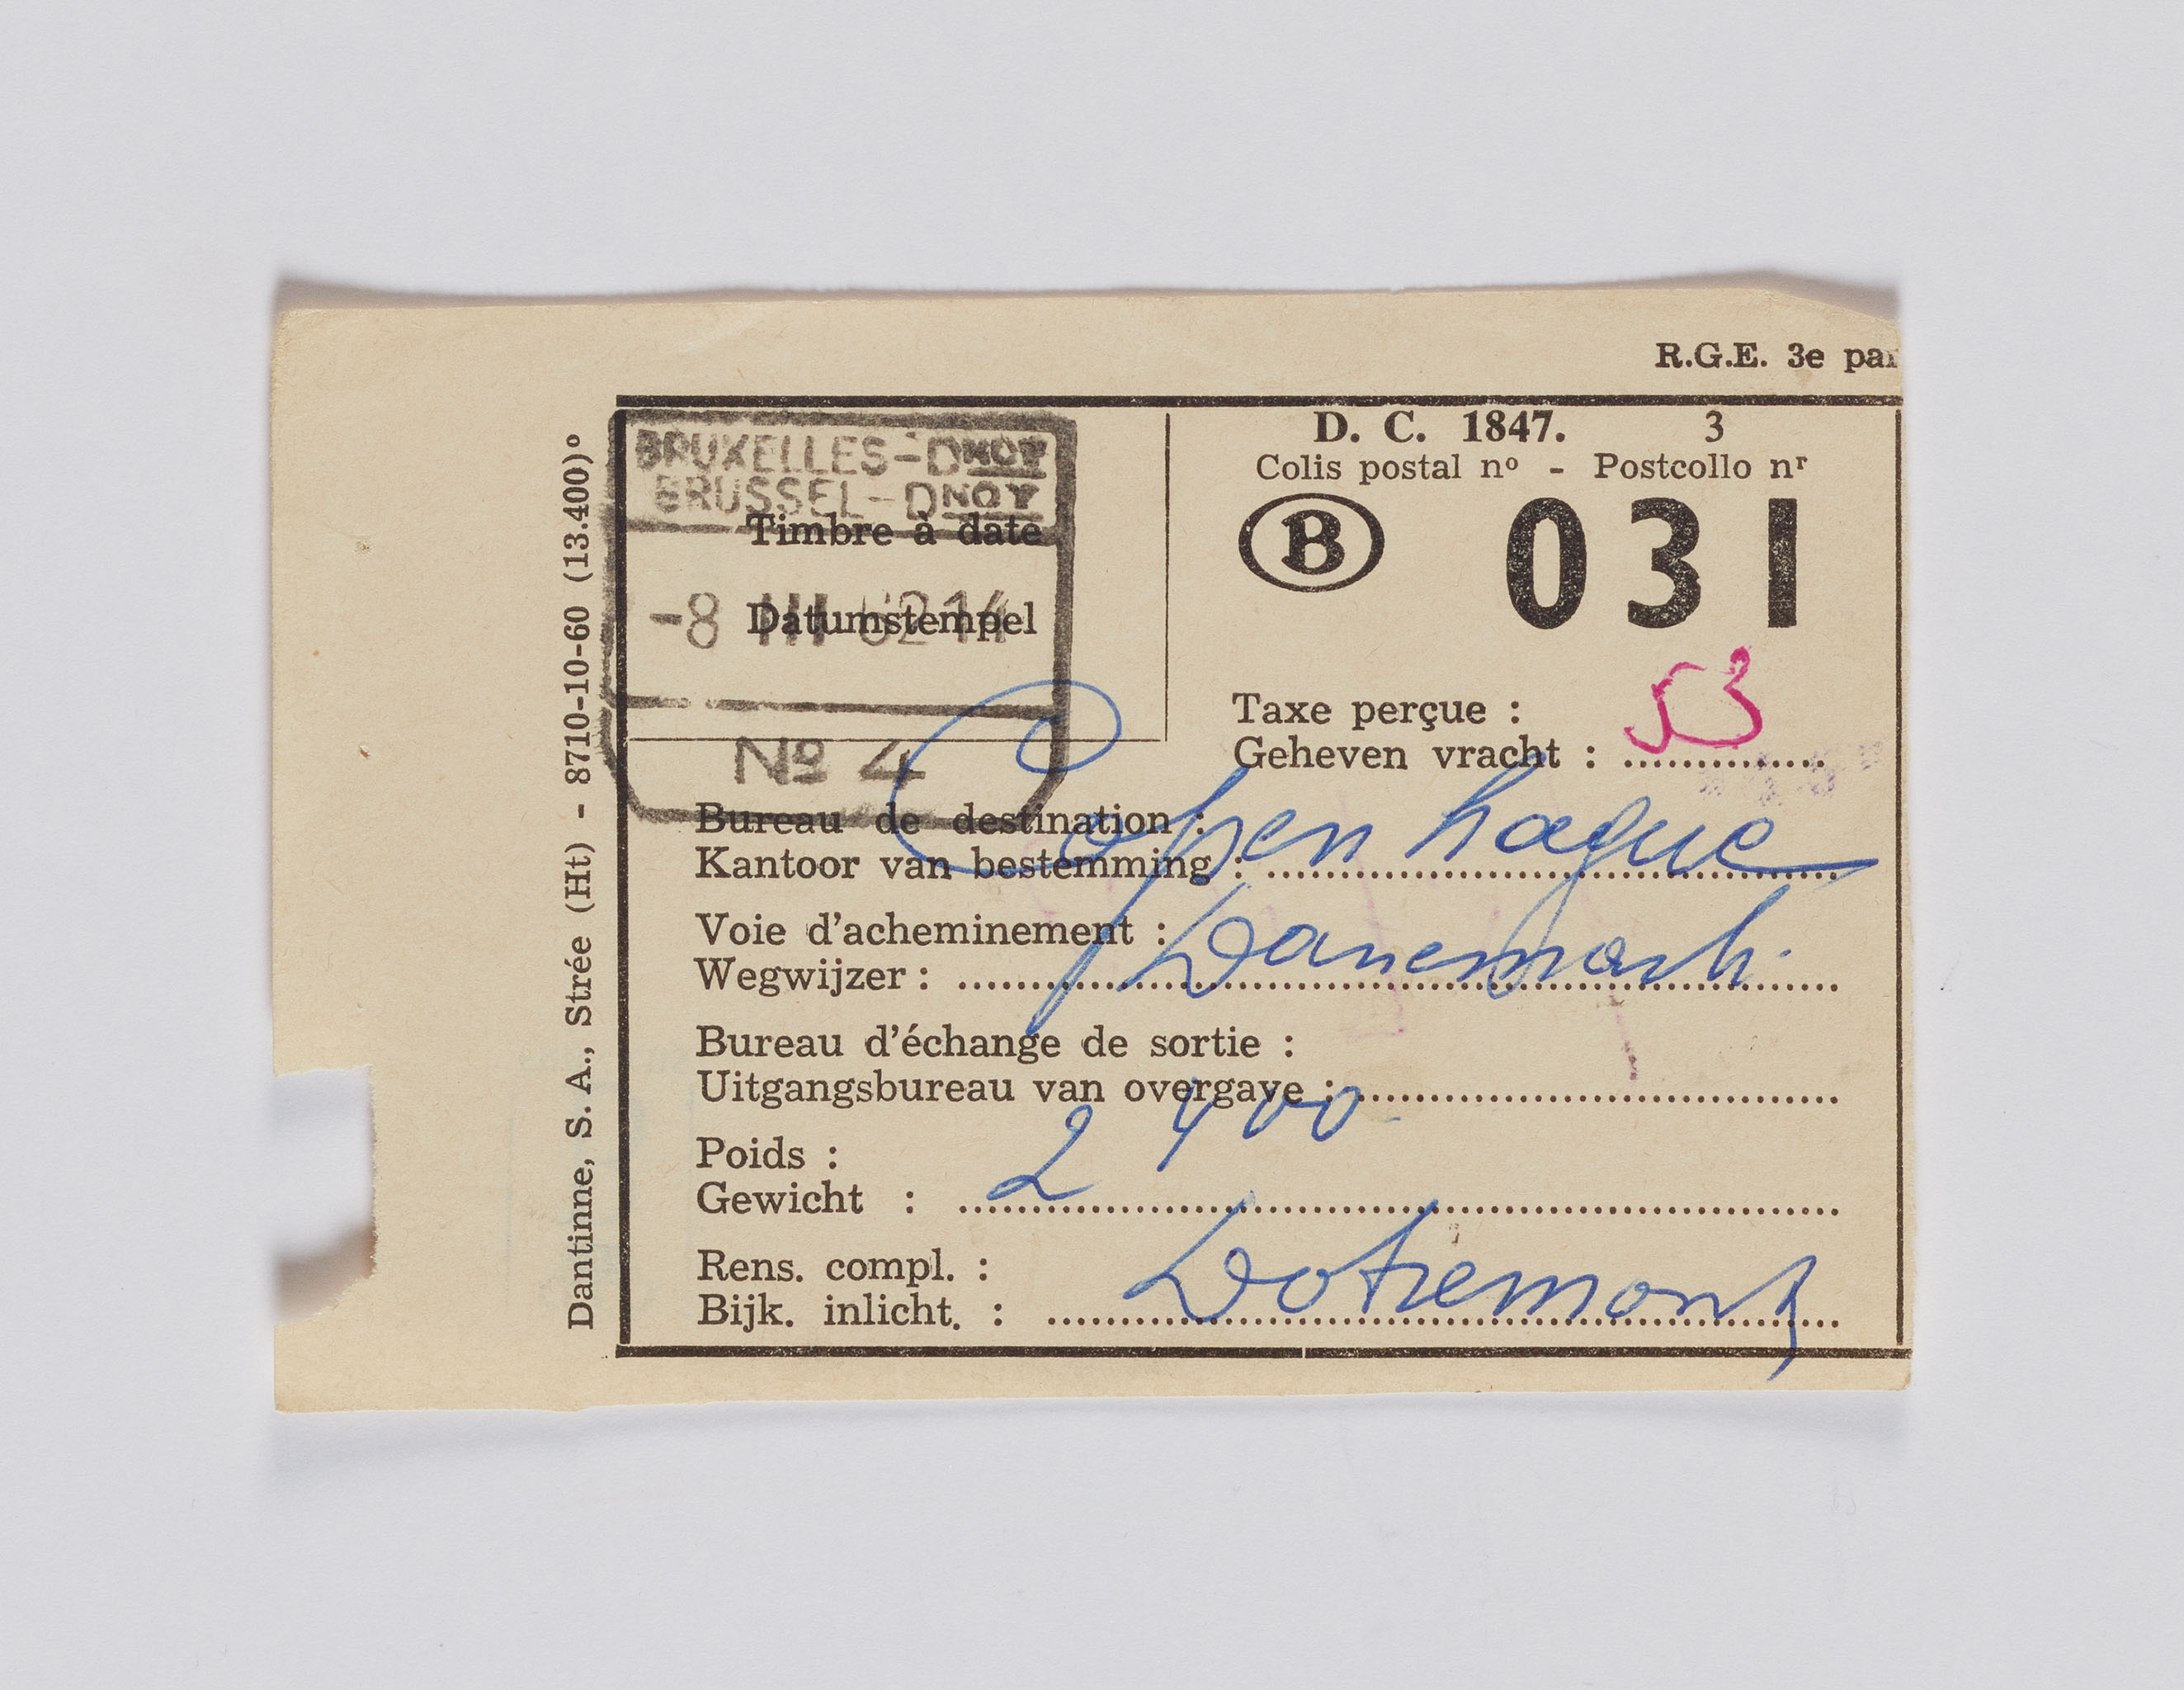 R.G.E. 3e par
D. C. 1847. 3
Colis postal nº - Postcollo nʳ
B 031
BRUXELLES-DNOT
BRUSSEL-DNOT
Timbre à date
-8 III 62 14
Datumstempel
Nº 4
Taxe perçue : 53
Geheven vracht :
Bureau de destination :
Kantoor van bestemming : Copenhague
Voie d'acheminement :
Wegwijzer : Danemark.
Bureau d'échange de sortie :
Uitgangsbureau van overgave :
Poids :
Gewicht : 2 400
Rens. compl. :
Bijk. inlicht. : Dotremont
Dantinne, S. A., Strée (Ht) - 8710-10-60 (13.400)º